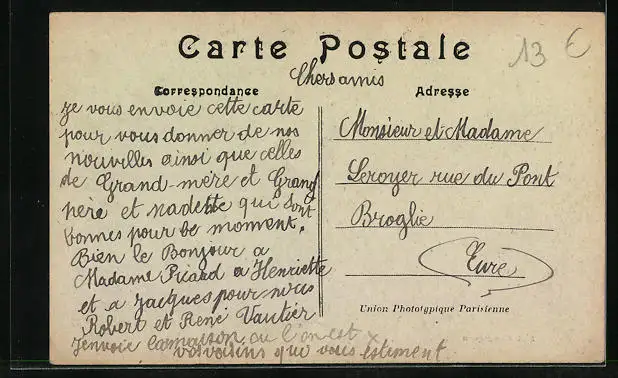 Carte Postale
13 €
Chers amis
Correspondance
Adresse
je vous envoie cette carte
pour vous donner de nos
nouvelles ainsi que celles
de Grand-mère et Grand
père et nadette qui sont
bonnes pour be moment.
Bien le Bonjour a
Madame Picard a Henriette
et a Jacques pour nous
Robert et René Vautier
J'envoie la maison ou l'on est x
vos voisins qui vous estiment
Monsieur et Madame
Leroyer rue du Pont
Broglie
Eure
Union Phototypique Parisienne